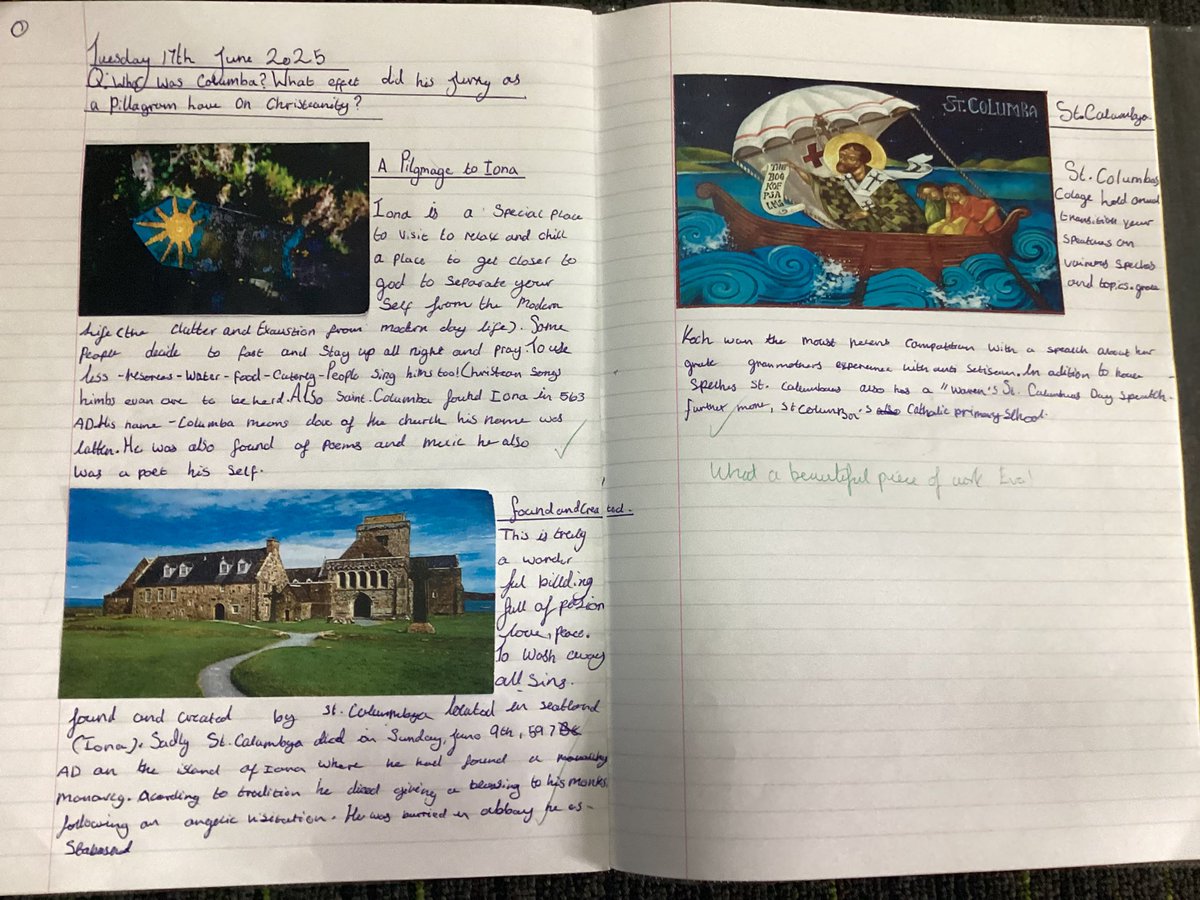 Tuesday 17th June 2025
Q: Who was Columba? What effect did his jurny as
a Pillagram have On Christianity?
A Pilgmage to Iona
Iona is a Special Place
to visit to relax and chill
a place to get closer to
god to separate your
self from the Modern
life (the clutter and Exaustion from modern day life). Some
People decide to fast and stay up all night and pray. To use
less - - Water - food - - People sing hims too! Christean songs
himbs evan are to be herd. Also Saint. Columba found Iona in 563
AD. His name - Columba means dove of the church his name was
latten. He was also found of Poems and music he also
was a poet his self.
found and Created.
This is truly
a wonder
ful billding
full of pasion
love, peace.
To wash away
all sins.
found and created by St. located in scotland
(Iona). Sadly St. died on Sunday, June 9th, 597
AD on the island of Iona where he had found a
. Acording to tradition he died giving a blessing to his monks
following an angelic visitation. He was burried in abbay he es-
ST. COLUMBA
THE
BOO
K OF
PSA
LMS
St.
St. Columbas
hold
your
on
speches
and topics. grace
Koch won the most with a speach about her
grate granmothers experience with . In adition to
Speches St. also has a St. Columbas Day speatch.
further more, St Columba's Catholic primary School.
What a beautiful piece of work Eva!